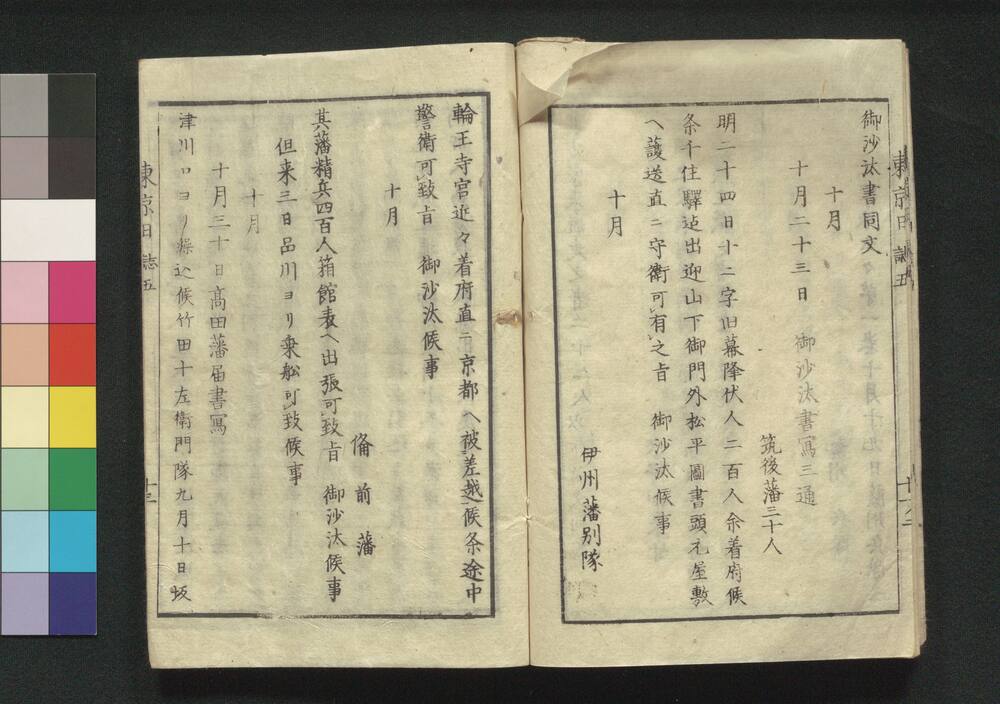 東京日誌五
御沙汰書同文
十月
十月二十三日　御沙汰書寫三通
筑後藩三十人
明二十四日十二字旧幕降伏人二百人余着府候
条千住驛迠出迎山下御門外松平圖書頭元屋敷
へ護送直ニ守衛可有之旨　御沙汰候事
十月
伊州藩別隊
輪王寺宮近々着府直ニ京都へ被差越候条途中
警衛可致旨　御沙汰候事
十月
俻前藩
其藩精兵四百人箱館表へ出張可致旨　御沙汰候事
但来三日品川ヨリ乗舩可致候事
十月
十月三十日高田藩届書寫
津川口ヨリ繰込候竹田十左衛門隊九月十日坂
東京日誌五
十三